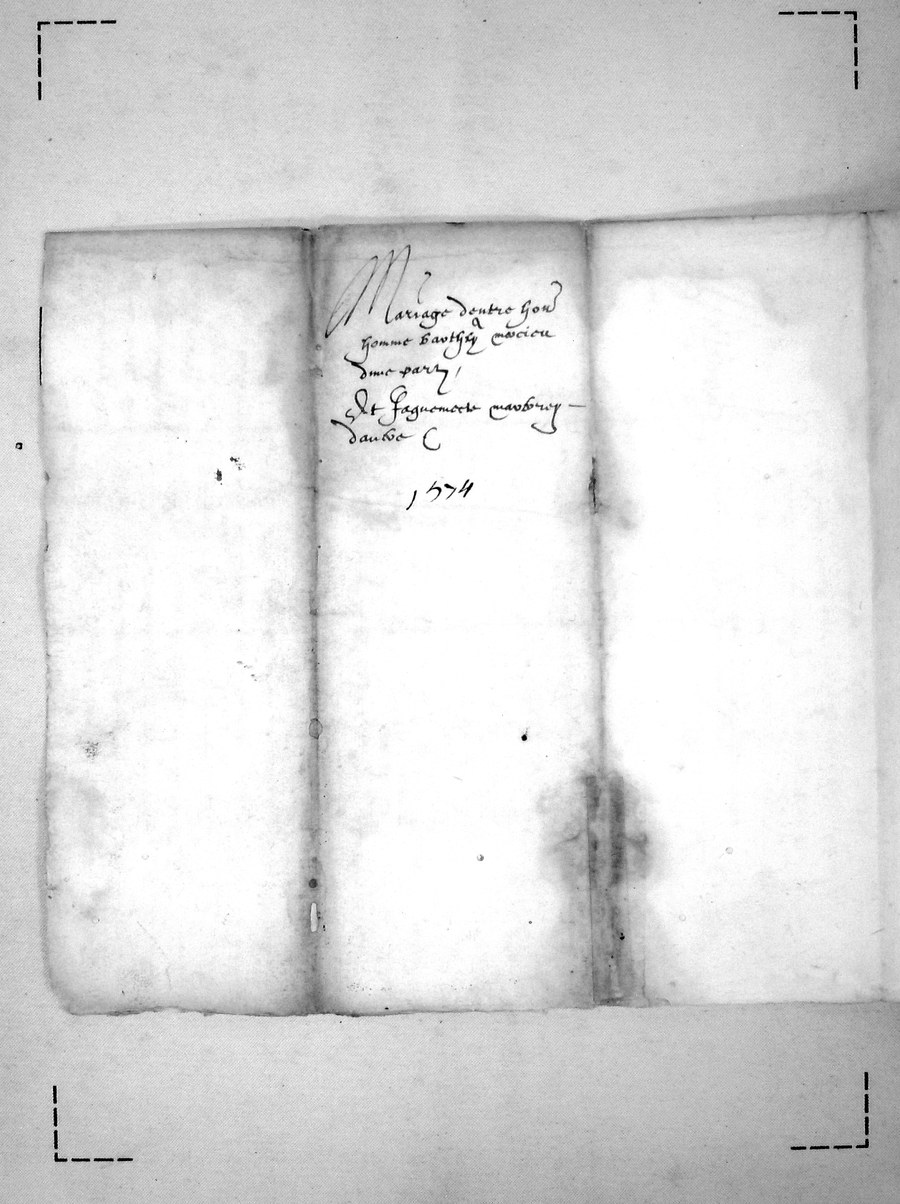 Mariage dentre hon
homme barthy mercieu
dune party /
Et Jaquemete
daultre
1574